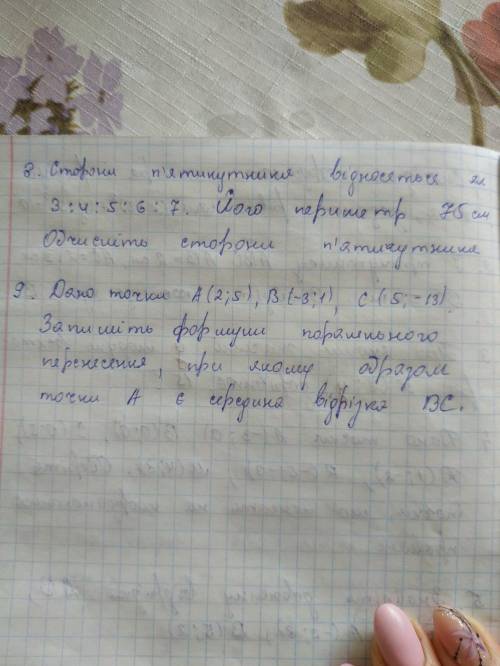 8. Сторони п'ятикутника відносяться як
3:4:5:6:7. Його периметр 75 см
Обчисліть сторони п'ятикутника
9. Дано точки А(2;5), В(-3;1), С(5;-13).
Запишіть формули паралельного
перенесення, при якому образом
точки А є середина відрізка ВС.